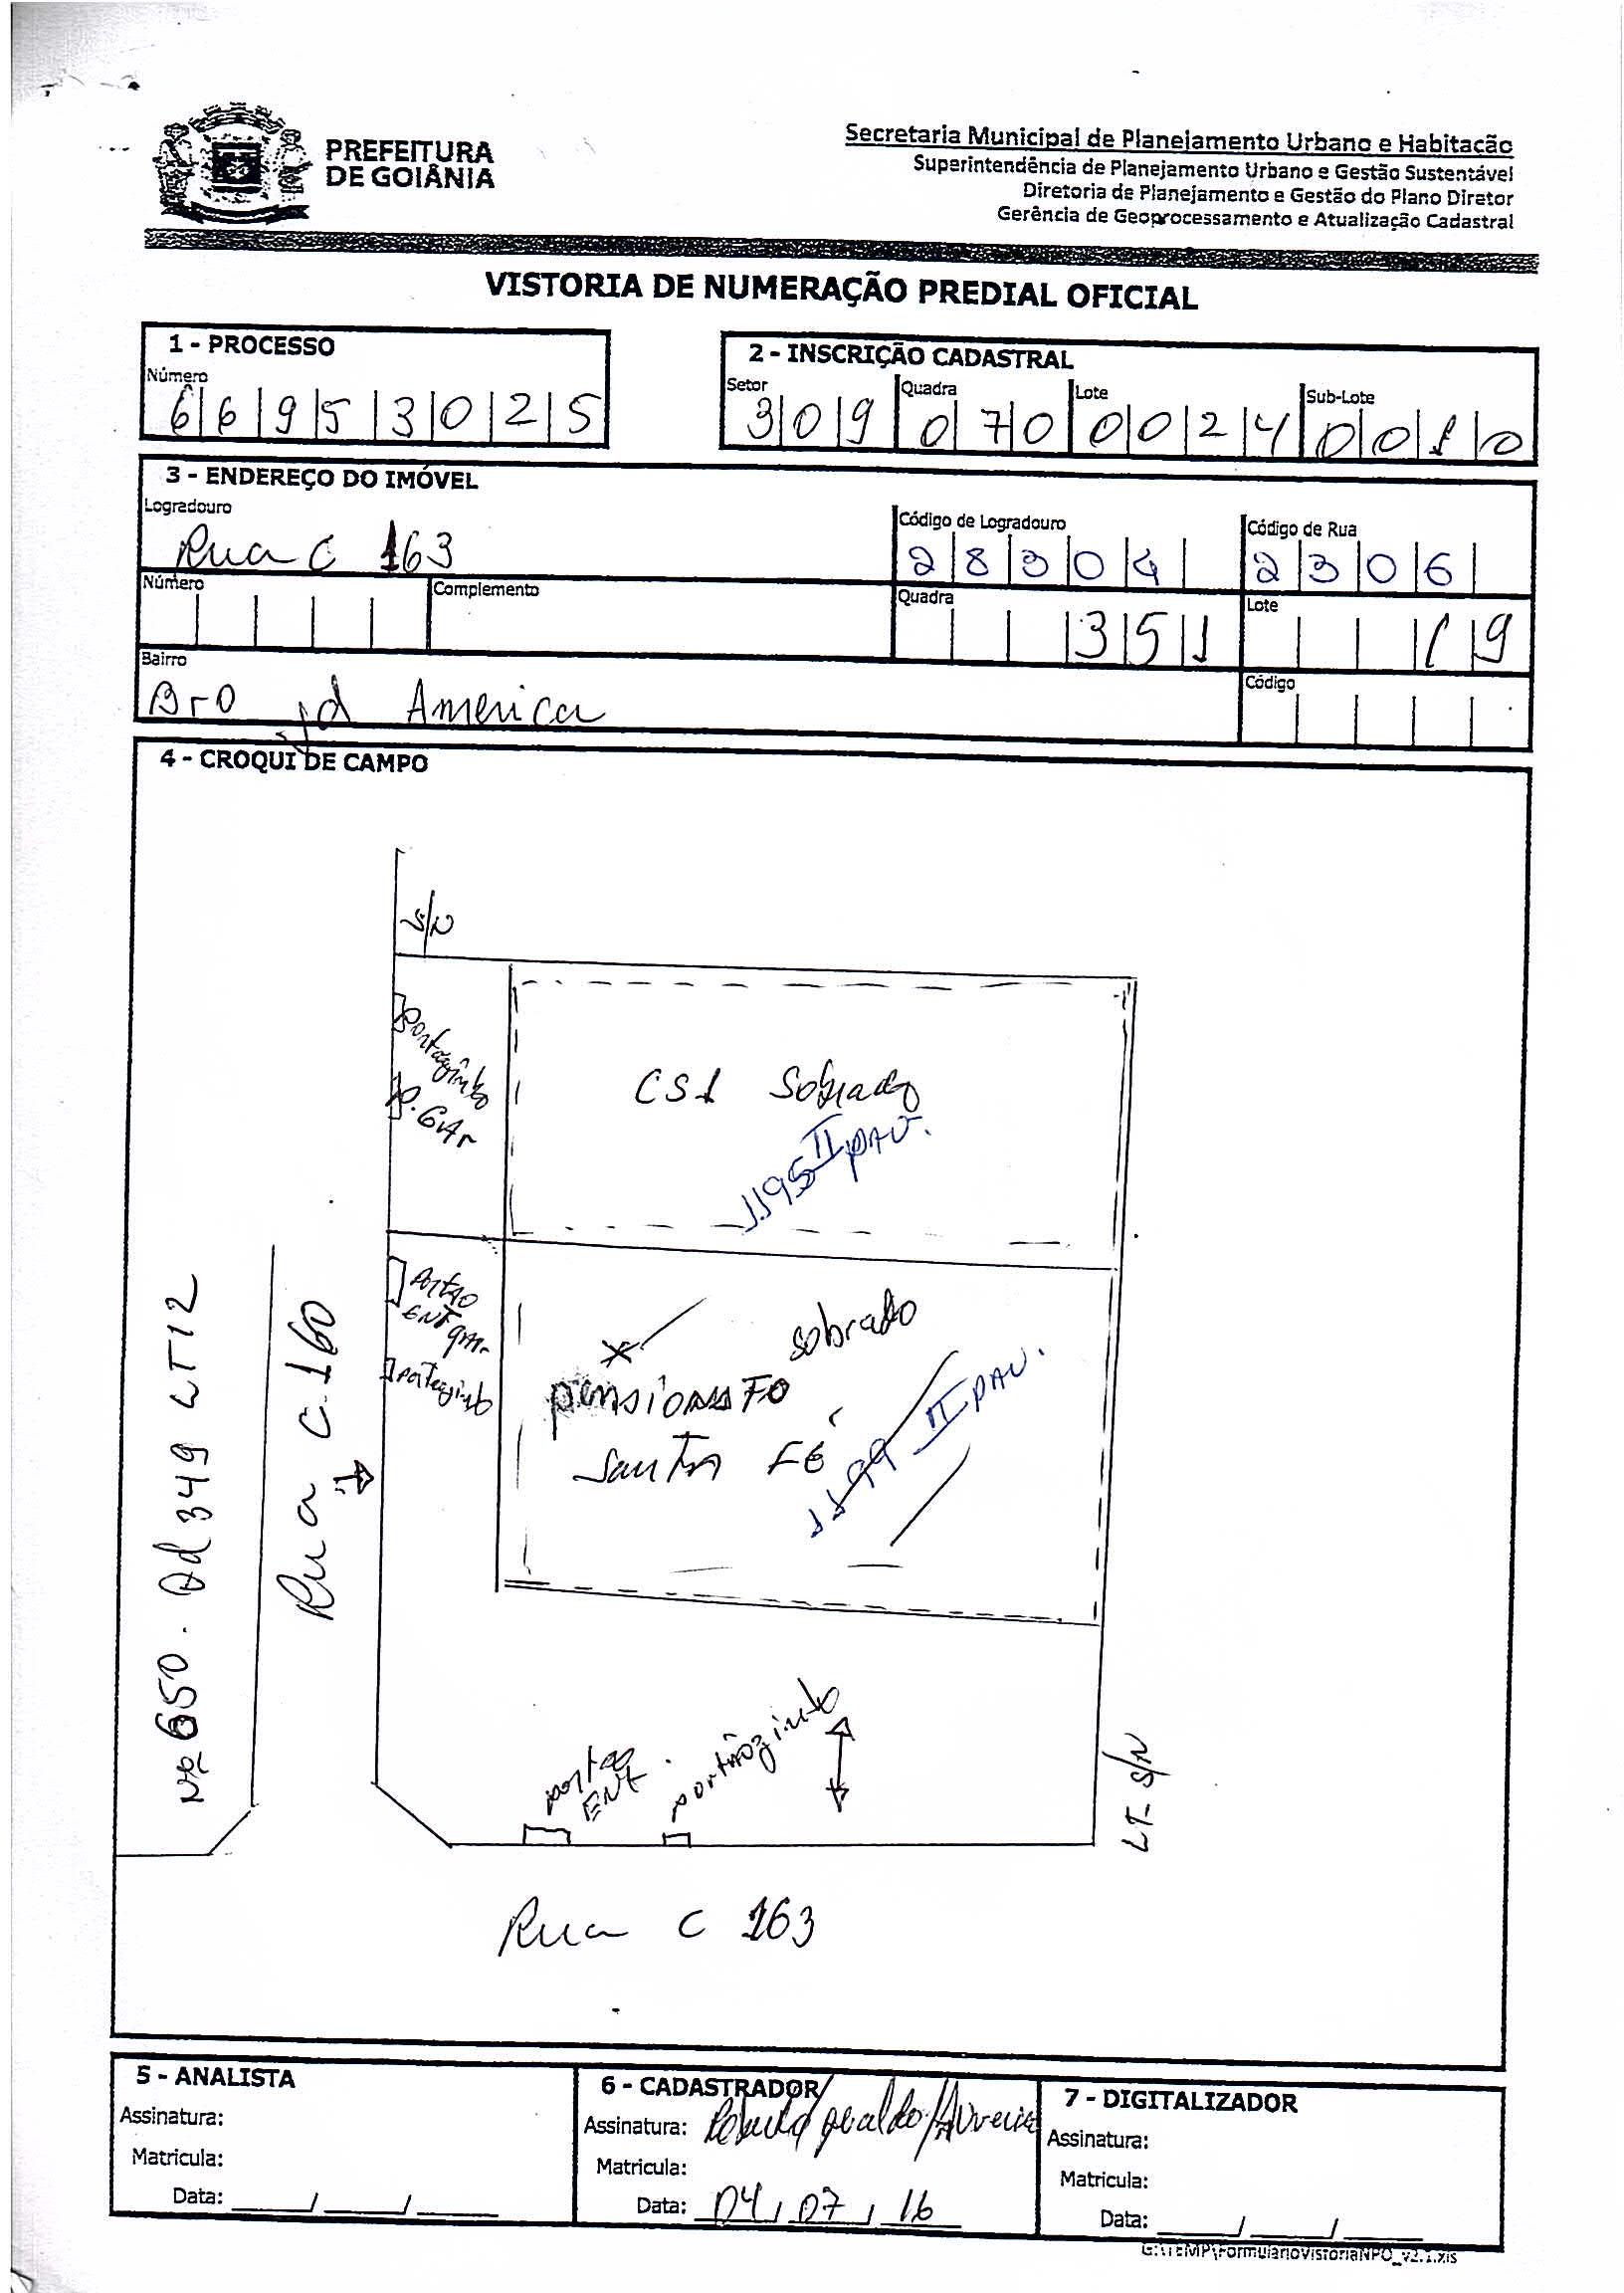 PREFEITURA
DE GOIÂNIA
Secretaria Municipal de Planejamento Urbano e Habitação
Superintendência de Planejamento Urbano e Gestão Sustentável
Diretoria de Planejamento e Gestão do Plano Diretor
Gerência de Geoprocessamento e Atualização Cadastral
VISTORIA DE NUMERAÇÃO PREDIAL OFICIAL
1 - PROCESSO
Número
66953025
2 - INSCRIÇÃO CADASTRAL
Setor Quadra Lote Sub-Lote
309 070 0024 0010
3 - ENDEREÇO DO IMÓVEL
Logradouro Código de Logradouro Código de Rua
Rua C 163 28304 2306
Número Complemento Quadra Lote
351 19
Bairro Código
Bro Jd America
4 - CROQUI DE CAMPO
S/N
portaozinho
P. GAr
CS1 Sobrado
1195 II PAV.
Portao
ENT
portaozinho
sobrado
pensionaTo
Santa Fé
1199 II PAV.
Nº 650. Qd 349 LT12
Rua C.160
portao
ENt.
portãozinho
LT- S/N
Rua C 163
5 - ANALISTA
Assinatura:
Matricula:
Data: ____/____/____
6 - CADASTRADOR
Assinatura:
Matricula:
Data: 04/07/16
7 - DIGITALIZADOR
Assinatura:
Matricula:
Data: ____/____/____
G:\TEMP\FormularioVistoriaNPO_v2.1.xls